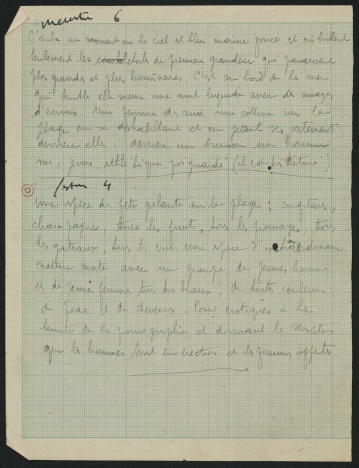 meurtre 6
C'est un moment où le ciel est bleu marine foncé et où brillent
seulement les étoiles de première grandeur qui paraissent
plus grandes et plus lumineuses. C'est au bord de la mer
qui semble elle même une nuit liquide avec des nuages
d'écume. Une femme descend une colline vers la
plage en se déshabillant et en jetant ses vêtements
derrière elle. derrière un buisson un homme
nu, jeune, athlétique, poignarde
4
Une espèce de fête galante sur la plage :
champagnes, tous les fruits, tous les fromages, tous
les gâteaux, tous le vin une espèce d'
nature morte avec un groupe de jeunes hommes
et de jeunes femmes tous de toutes couleurs
de peau et de cheveux. Pose érotique à la
limite de la pornographie et donnant le sensation
que les hommes sont en érection et les femmes offertes